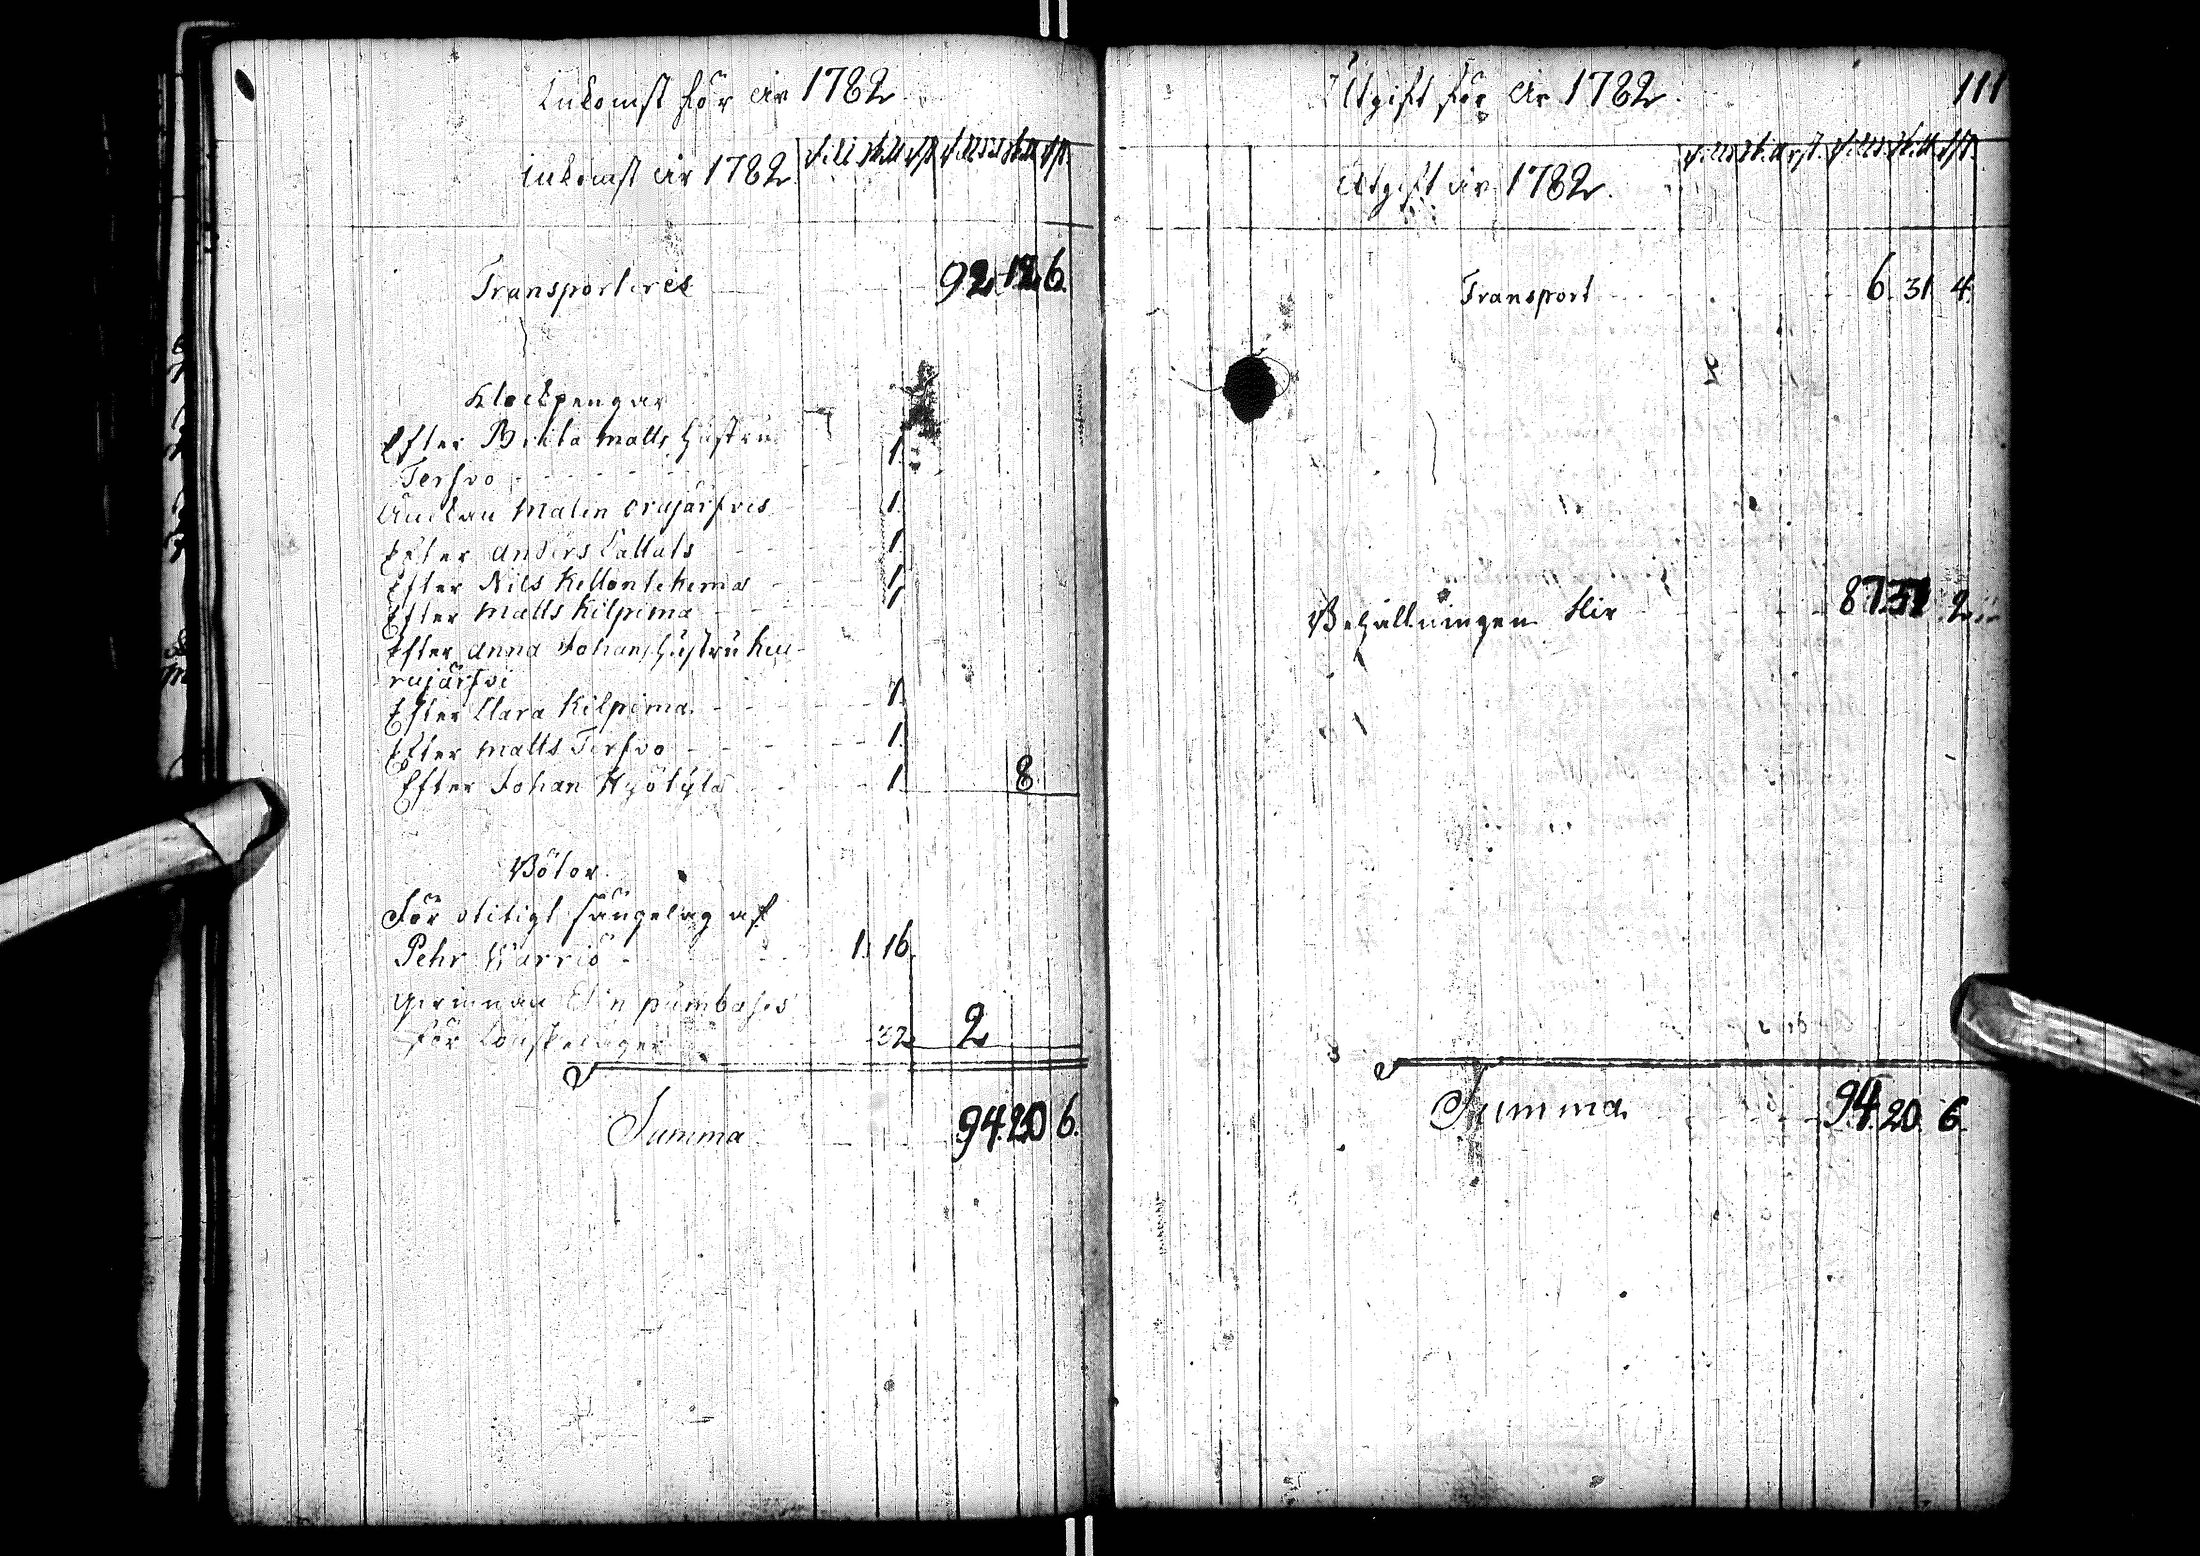 Inkomst för år 1782
Inkomst år 1782
Transporteres 92 12 6.
Klockpengar
Efter Brita Matts Hustru
Terfvo 1.
Änckan Malin Orajärfvis 1.
Efter Anders Lallals 1.
Efter Nils Kellontekema 1
Efter Matts Kilpima 1
Efter Anna Johans Hustru Kuu-
rajärfvi
Efter Clara Kilpima 1.
Efter Matts Terfvo 1.
Efter Johan Kyötylä 1 8.
Böter.
För otitigt sängelag af
Pehr Warrio 1. 16.
Qvinnan Elin
för Lönskeläger 32 2
Summa 94. 20 6.
Utgift för år 1782. 111
Utgift år 1782.
Transport 6. 31 4.
Behållningen blir 87. 37 2
Summa 94. 20. 6.